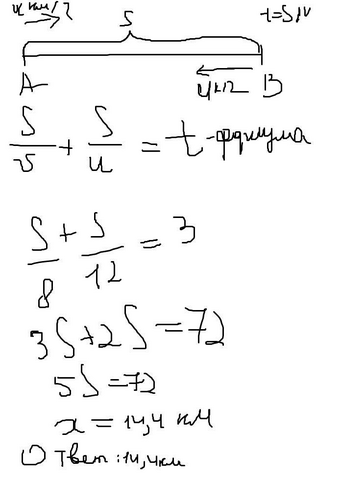 S t=S/v
A B
S/v + S/u = t - формула
S/8 + S/12 = 3
3S+2S=72
5S=72
x=14,4 км
Ответ: 14,4км